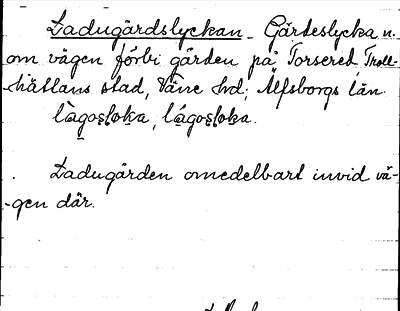 Ladugårdslyckan - Gärdeslycka n.
om vägen förbi gården på Torsered, Troll-
hättans stad, Väne hd; Älfsborgs län.
Ladugården omedelbart invid vä-
-gen där.